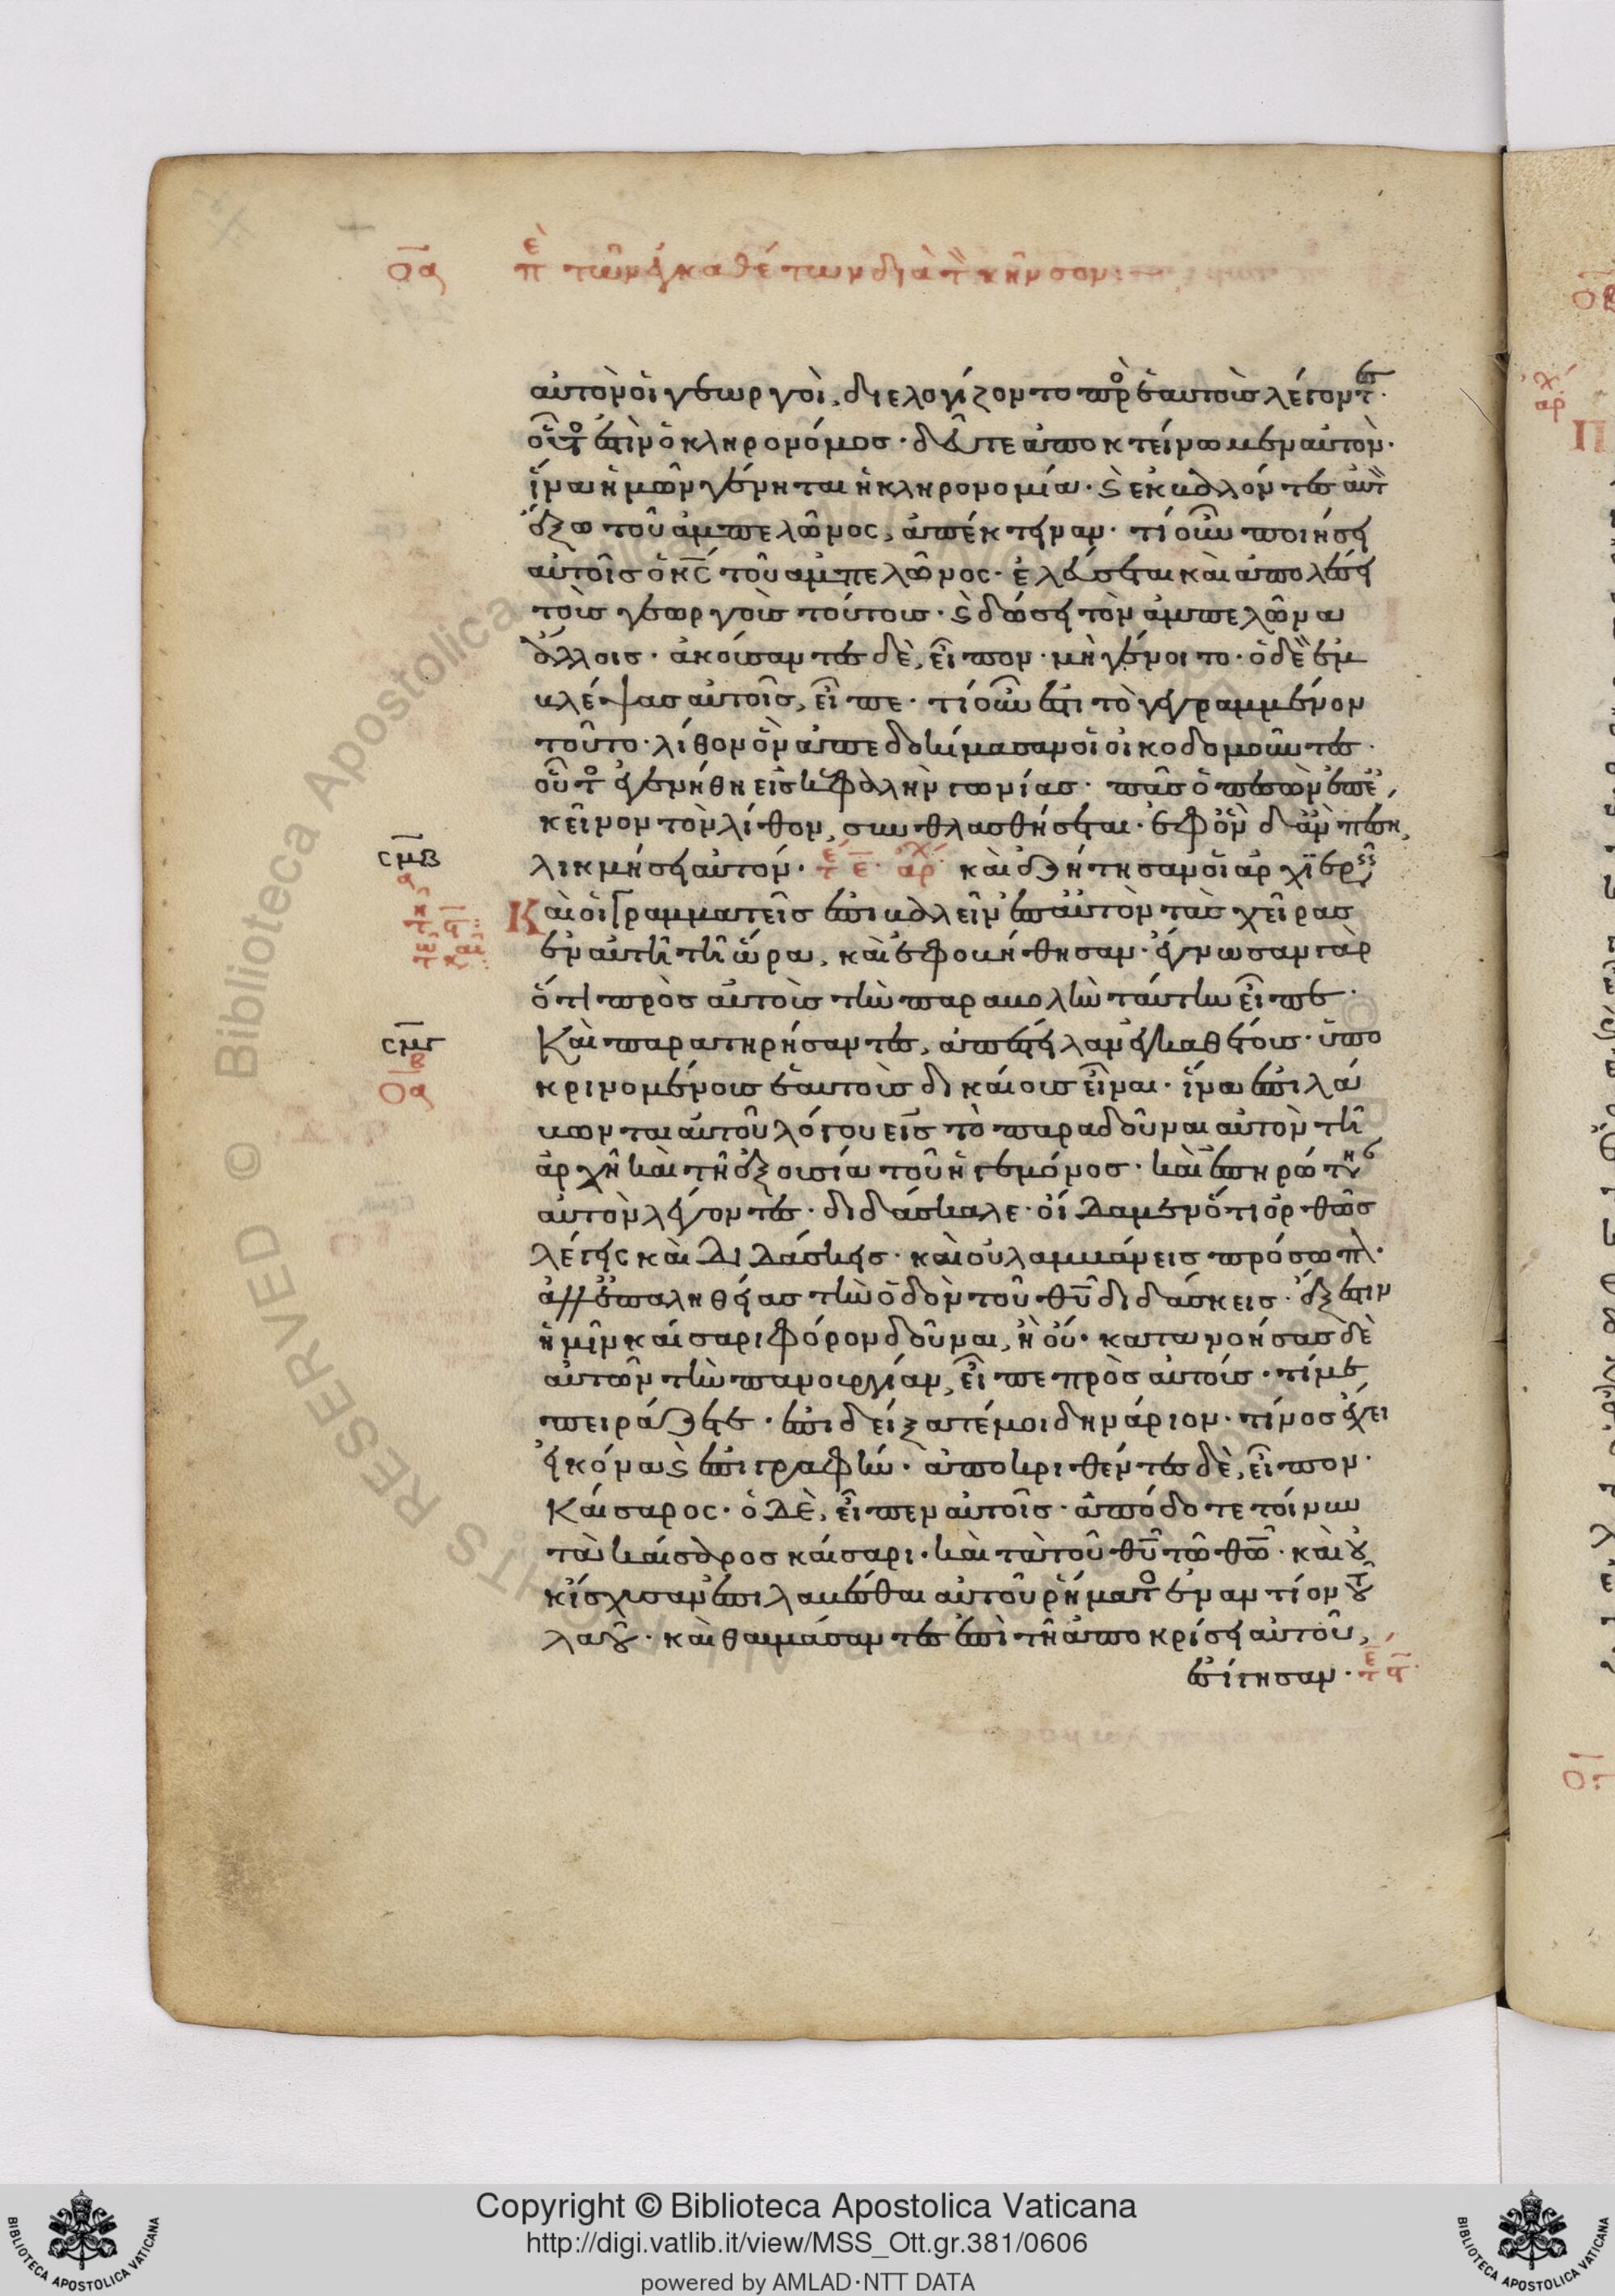 ο̅α ἐπ τῶν ἐγκαθέτων διὰ τ̀ κῆνσον:
αὐτὸν οἱ γεωργοὶ, διελογίζοντο πρὸ ἑαυτοὺς λέγοντες·
οὗτο ἐστὶν ὁ κληρονόμος· δεῦτε ἀποκτείνωμεν αὐτὸν·
ἵνα ἡμῶν γένηται ἡ κληρονομία· ϛ ἐκβαλόντες αὐτ
ἔξω τοῦ ἀμπελῶνος, ἀπέκτειναν· τί οὖν ποιήσει
αὐτοῖς ὁ κ̅ς̅ τοῦ ἀμπελῶνος· ἐλεύσεται καὶ ἀπολέσει
τοὺς γεωργοὺς τούτους· ϛ δώσει τὸν ἀμπελῶνα
ἄλλοις· ἀκούσαντες δὲ, εἶπον· μὴ γένοιτο· ὁ δὲ ἐμ
βλέψας αὐτοῖς, εἶπε· τί οὖν ἐστι τὸ γεγραμμένον
τοῦτο· λίθον ὃν ἀπεδοκίμασαν οἱ οἰκοδομοῦντες·
οὗτο ἐγενήθη εἰς κεφαλὴν γωνίας· πᾶς ὁ πεσὼν ἐπ ἐ
κεῖνον τὸν λίθον, συνθλασθήσεται· ἐφ ὃν δ ἂν πέση,
σμβ λικμήσει αὐτόν· τε ε̅· ἀρχ καὶ ἐζήτησαν οἱ ἀρχιερεῖς
Καὶ οἱ γραμματεῖς ἐπιβαλεῖν ἐπ αὐτὸν τὰς χεῖρας
ἐν αὐτῆ τῆ ὥρα, καὶ ἐφοβήθησαν· ἔγνωσαν γὰρ
ὅτι πρὸς αὐτοὺς τὴν παραβολὴν ταύτην εἶπε·
σμγ Καὶ παρατηρήσαντες, ἀπέστειλαν ἐγκαθέτους· ὑπο
ο̅α κρινομένους ἑαυτοὺς δικαίους εἶναι· ἵνα ἐπιλά
βωνται αὐτοῦ λόγου εἰς τὸ παραδοῦναι αὐτὸν τῆ
ἀρχῆ καὶ τῆ ἐξουσία τοῦ ἡγεμόνος· καὶ ἐπηρώτην
αὐτὸν λέγοντες· διδάσκαλε· οἴδαμεν ὅτι ὀρθῶς
λέγεις καὶ διδάσκεις· καὶ οὐ λαμβάνεις πρόσωπ·
ἀλλ ἐπ αληθείας τὴν ὁδὸν τοῦ θ̅υ̅ διδάσκεις· ἔξεστιν
ἡμῖν καίσαρι φόρον δοῦναι, ἢ οὐ· κατανοήσας δὲ
αὐτῶν τὴν πανουργίαν, εἶπε πρὸς αὐτούς· τί με
πειράζετε· ἐπιδείξατέ μοι δηνάριον· τίνος ἔχει
εἰκόνα ϛ ἐπιγραφήν· ἀποκριθέντες δὲ, εἶπον·
Καίσαρος· ὁ δὲ, εἶπεν αὐτοῖς· ἀπόδοτε τοίνυν
τὰ καίσαρος καίσαρι· καὶ τὰ τοῦ θ̅υ̅ τῶ θ̅ω̅· καὶ οὐ
κ ἴσχυσαν ἐπιλαβέσθαι αὐτοῦ ῥήματο ἐναντίον τοῦ
λαοῦ· καὶ θαυμάσαντες ἐπὶ τῆ ἀποκρίσει αὐτοῦ,
ἐσίγησαν· τε
Copyright © Biblioteca Apostolica Vaticana
http://digi.vatlib.it/view/MSS_Ott.gr.381/0606
powered by AMLAD·NTT DATA
BIBLIOTECA APOSTOLICA VATICANA
BIBLIOTECA APOSTOLICA VATICANA